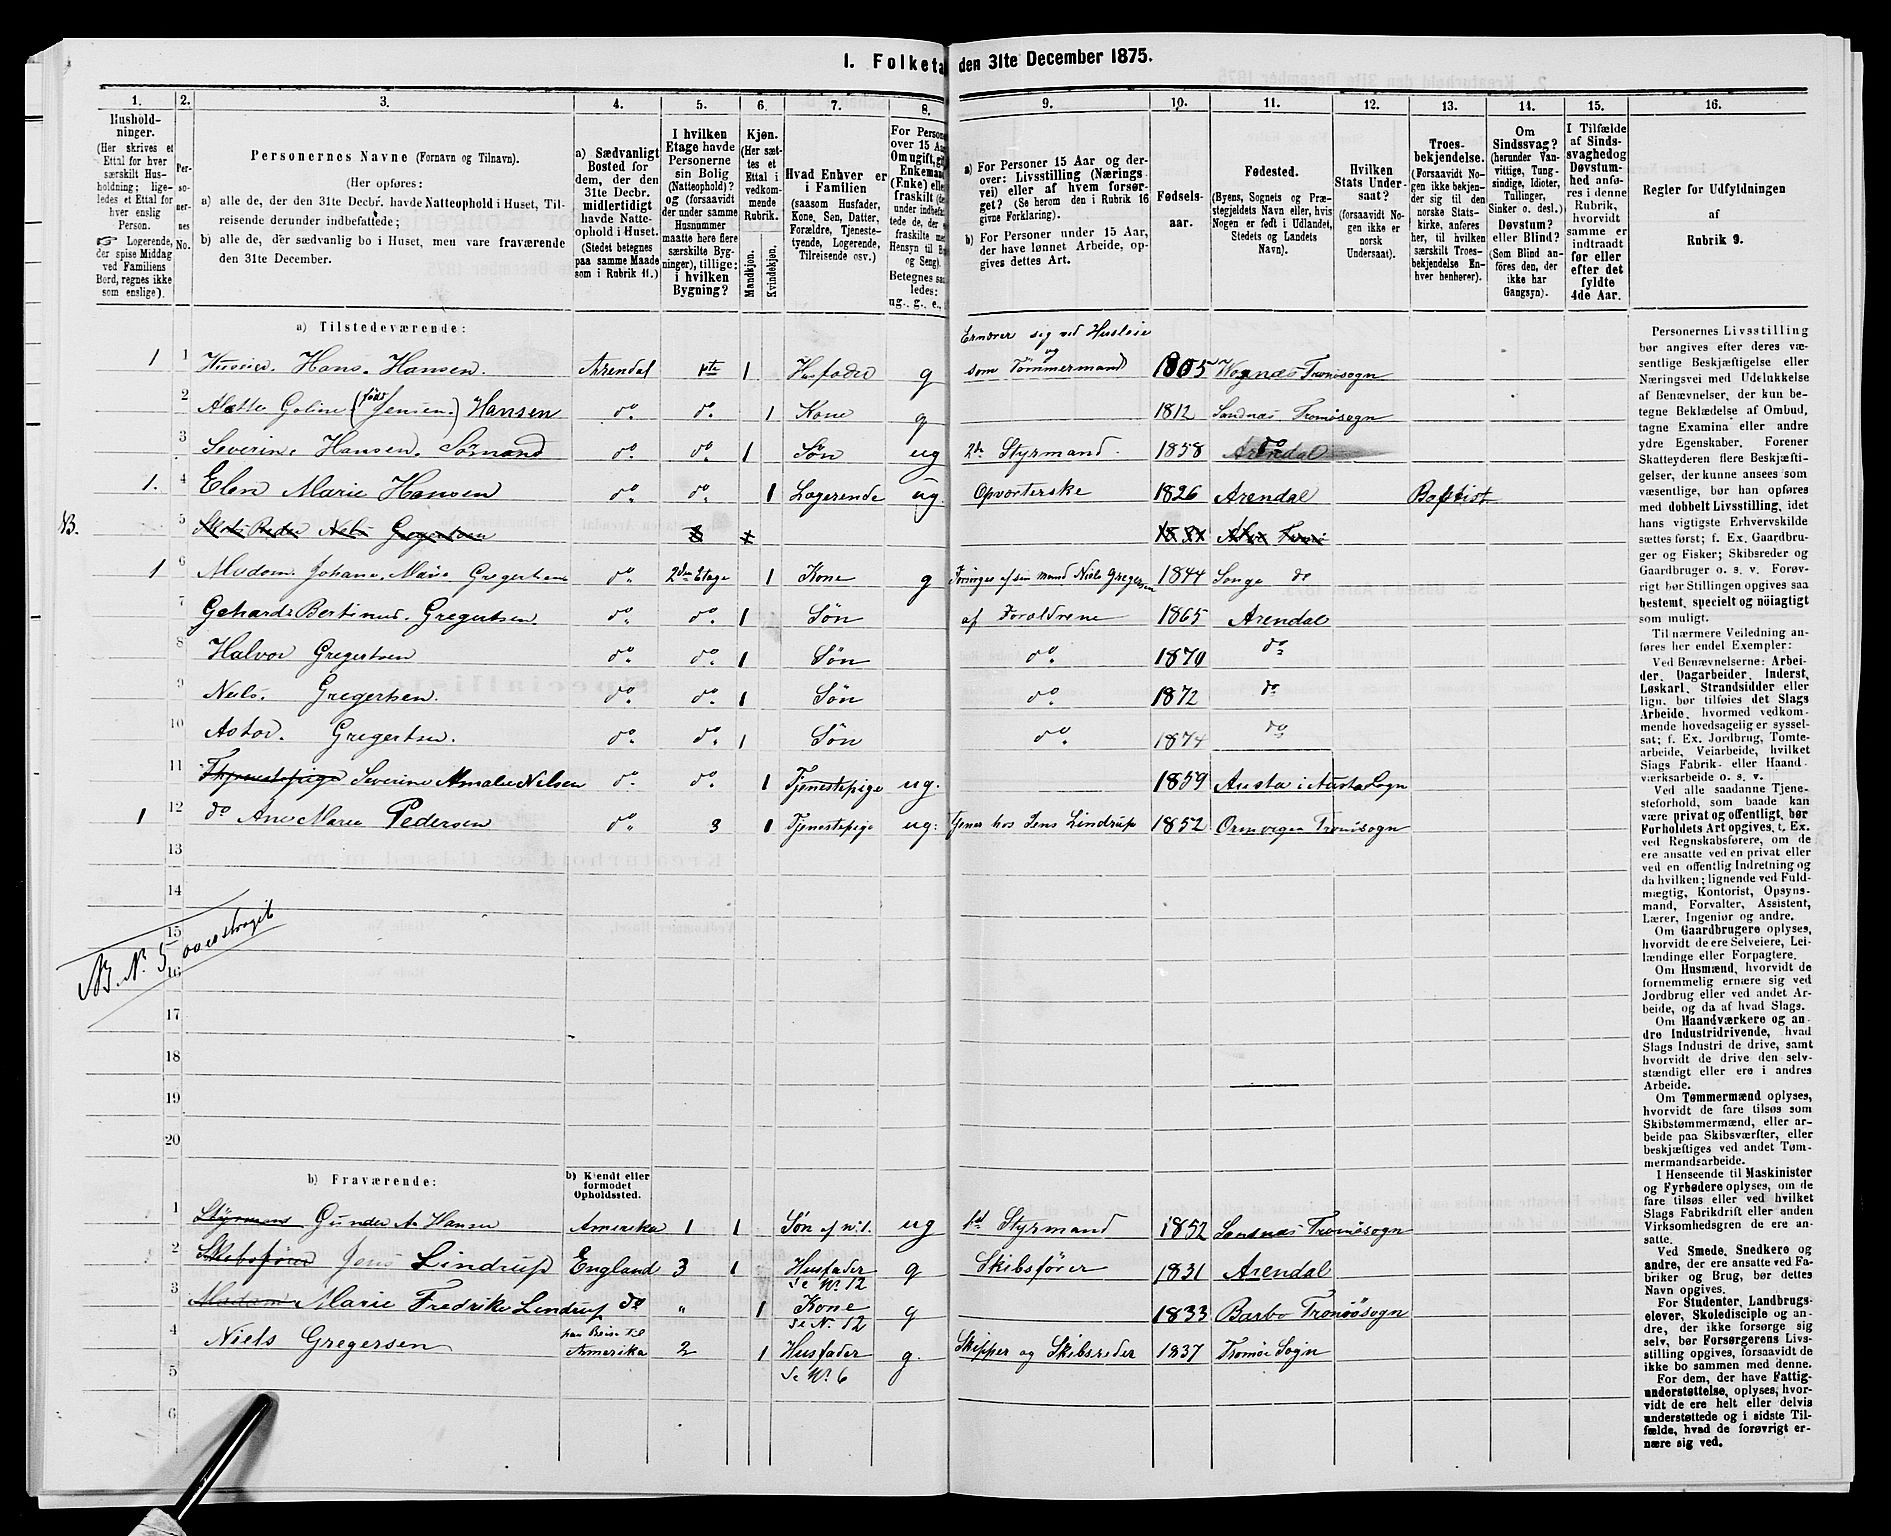 I. Folketa den 31te December 1875.
1. 2. 3. 4. 5. 6. 7. 8. 9. 10. 11. 12. 13. 14. 15. 16.
Hushold-
ninger.
(Her skrives et
Ettal for hver
særskilt Hus-
holdning; lige-
ledes et Ettal for
hver enslig
Person.
☞ Logerende,
der spise Middag
ved Familiens
Bord, regnes ikke
som enslige).
Per-
so-
ner-
nes
No.
Personernes Navne (Fornavn og Tilnavn).
(Her opføres:
a) alle de, der den 31te Decbr. havde Natteophold i Huset, Til-
reisende derunder indbefattede;
b) alle de, der sædvanlig bo i Huset, men vare fraværende
den 31te December.
a) Sædvanligt
Bosted for
dem, der den
31te Decbr.
midlertidigt
havde Natte-
ophold i Huset.
(Stedet betegnes
paa samme Maade
som i Rubrik 11.)
I hvilken
Etage havde
Personerne
sin Bolig
(Natteophold)?
og (forsaavidt
der under samme
Husnummer
maatte høre flere
særskilte Byg-
ninger), tillige:
i hvilken
Bygning?
Kjøn.
(Her sæt-
tes et
Ettal i
vedkom-
mende
Rubrik.
Mandkjøn.
Kvindekjøn.
Hvad Enhver er
i Familien
(saasom Husfader,
Kone, Søn, Datter,
Forældre, Tjeneste-
tyende, Logerende,
Tilreisende osv.)
For Persone
over 15 Aar
Om ugift, gi
Enkemand
(Enke) elle
fraskilt (de
under indbefat
tede de, de
fraskilte me
Hensyn til B
og Seng).
Betegnes saa
ledes:
ug., g., e.,
a) For Personer 15 Aar og der-
over: Livsstilling (Nærings
vei) eller af hvem forsør-
get? (Se herom den i Rubrik 16
givne Forklaring).
b) For Personer under 15 Aar,
der have lønnet Arbeide, op-
gives dettes Art.
Fødsels-
aar.
Fødested.
(Byens, Sognets og Præ-
stegjeldets Navn eller, hvis
Nogen er født i Udlandet,
Stedets og Landets
Navn).
Hvilken
Stats Under-
saat?
(forsaavidt No-
gen ikke er
norsk
Undersaat).
Troes-
bekjendelse.
(Forsaavidt No-
gen ikke bekjen-
der sig til den
norske Stats-
kirke, anføres
her, til hvilken
særskilt Troes-
bekjendelse En-
hver henhører).
Om
Sindssvag?
(herunder Van-
vittige, Tung-
sindige, Idioter,
Tullinger,
Sinker o. desl.)
Døvstum?
eller Blind?
(Som Blind an-
føres den, der
ikke har
Gangsyn).
I Tilfælde
af Sinds-
svaghed og
Døvstum-
hed anfø-
res i denne
Rubrik,
hvorvidt
samme er
indtraadt
før eller
efter det
fyldte
4de Aar.
Regler for Udfyldningen
af
Rubrik 9.
a) Tilstedeværende:
Ernærer sig ved Husleie
og
1 1 Hans Hansen. Arendal 1ste 1 Husfader g som Tømmermand 1805 Tromøsogn
2 Goline (født Jensen) Hansen do. do. 1 Kone g 1812 Sandnæs Tromøsogn
3 Severin Hansen. Sømand do. do. 1 Søn ug 2den Styrmand. 1858 Arendal do
1. 4 Elen Marie Hansen do. do. 1 Logerende ug. Opvarterske 1826 Arendal Baptist
NB. 5
1 6 Madam Johane Marie Gregertsen do. 2den Etage 1 Kone g af sin Mand Niels Gregersen 1844 Songe do
7 Gehard Bertinus Gregertsen do. do. 1 Søn af Forældrene 1865 Arendal
8 Halvor Gregertsen do. do. 1 Søn do. 1870 do
9 Niels. Gregertsen. do. do. 1 Søn do. 1872 do
10 Gregertsen. do. do. 1 Søn do. 1874 do
11 Tjenestepige Severine Amalie Nilsen do. do. 1 Tjenestepige ug. 1859 Austa i Austa Sogn
1 12 do Ane Marie Pedersen do. 3 1 Tjenestepige ug. tjener hos Jens Lindrup 1852 Tromøsogn
13
14
15
16
NB. N. 5 overstrøget
17
18
19
20
b) Fraværende:
b) Kjendt eller
formodet
Opholdssted.
1 Styrmand Gunder A. Hansen Amerika 1 1 Søn af No. 1. ug Styrmand 1852 Sandnæs Tromøsogn
2 Skibsfører Jens Lindrup England 3 1 Husfader g Skibsfører 1831 Arendal
Se No. 12
3 Madam Marie Fredrike Lindrup do " 1 Kone g 1833 Barbo Tromøsogn
Se N. 12
4 Niels Gregersen paa Reise til Amerika 2 1 Husfader g. Skipper og Skibsreder 1837 Tromøe Sogn
Se No. 6
5
6
Personernes Livsstilling
bør angives efter deres væ-
sentlige Beskjæftigelse eller
Næringsvei med Udelukkelse
af Benævnelser, der kun be-
tegne Beklædelse af Ombud,
tagne Examina eller andre
ydre Egenskaber. Forener
Skatteyderen flere Beskjæfti-
gelser, der kunne ansees som
væsentlige, bør han opføres
med dobbelt Livsstilling, idet
hans vigtigste Erhvervskilde
sættes først; f. Ex. Gaardbru-
ger og Fisker; Skibsreder og
Gaardbruger o. s. v. Forøv-
rigt bør Stillingen opgives saa
bestemt, specielt og nøiagtigt
som muligt.
Til nærmere Veiledning an-
føres her endel Exempler:
Ved Benævnelserne: Arbei-
der, Dagarbeider, Inderst,
Løskarl, Strandsidder eller
lign. bør tilføies det Slags
Arbeide, hvormed vedkom-
mende hovedsagelig er syssel-
sat; f. Ex. Jordbrug, Tomte-
arbeide, Veiarbeide, hvilket
Slags Fabrik- eller Haand-
værksarbeide o. s. v.
Ved alle saadanne Tjene-
steforhold, som baade kan
være privat og offentligt, bør
Forholdets Art opgives, t. Ex.
ved Regnskabsførere, om de
ere ansatte ved en privat eller
ved en offentlig Indretning og
da hvilken; lignende ved Fuld-
mægtig, Kontorist, Opsyns-
mand, Forvalter, Assistent,
Lærer, Ingeniør og andre.
Om Gaardbrugere oplyses,
hvorvidt de ere Selveiere, Lei-
lændinge eller Forpagtere.
Om Husmænd, hvorvidt de
fornemmelig ernære sig ved
Jordbrug eller ved andet Ar-
beide, og da af hvad Slags.
Om Haandværkere og an-
dre Industridrivende, hvad
Slags Industri de drive, samt
hvorvidt de drive den selv-
stændigt eller ere i andres
Arbeide.
Om Tømmermænd oplyses,
hvorvidt de fare tilsøs som
Skibstømmermænd, eller ar-
beide paa Skibsværfter, eller
beskjæftiges ved andet Tøm-
mermandsarbeide.
I Henseende til Maskinister
og Fyrbødere oplyses, om de
fare tilsøs eller ved hvilket
Slags Fabrikdrift eller anden
Virksomhedsgren de ere an-
satte.
Ved Smede, Snedkere og
andre, der ere ansatte ved Fa-
briker og Brug, bør dettes
Navn opgives.
For Studenter, Landbrugs-
elever, Skoledisciple og an-
dre, der ikke forsørge sig
selv, bør Forsørgerens Livs-
stilling opgives, forsaavidt de
ikke bo sammen med denne.
For dem, der have Fattig-
understøttelse, oplyses, hvor-
vidt de ere helt eller delvis
understøttede og i sidste Til-
fælde, hvad de forøvrigt er-
nære sig ved.